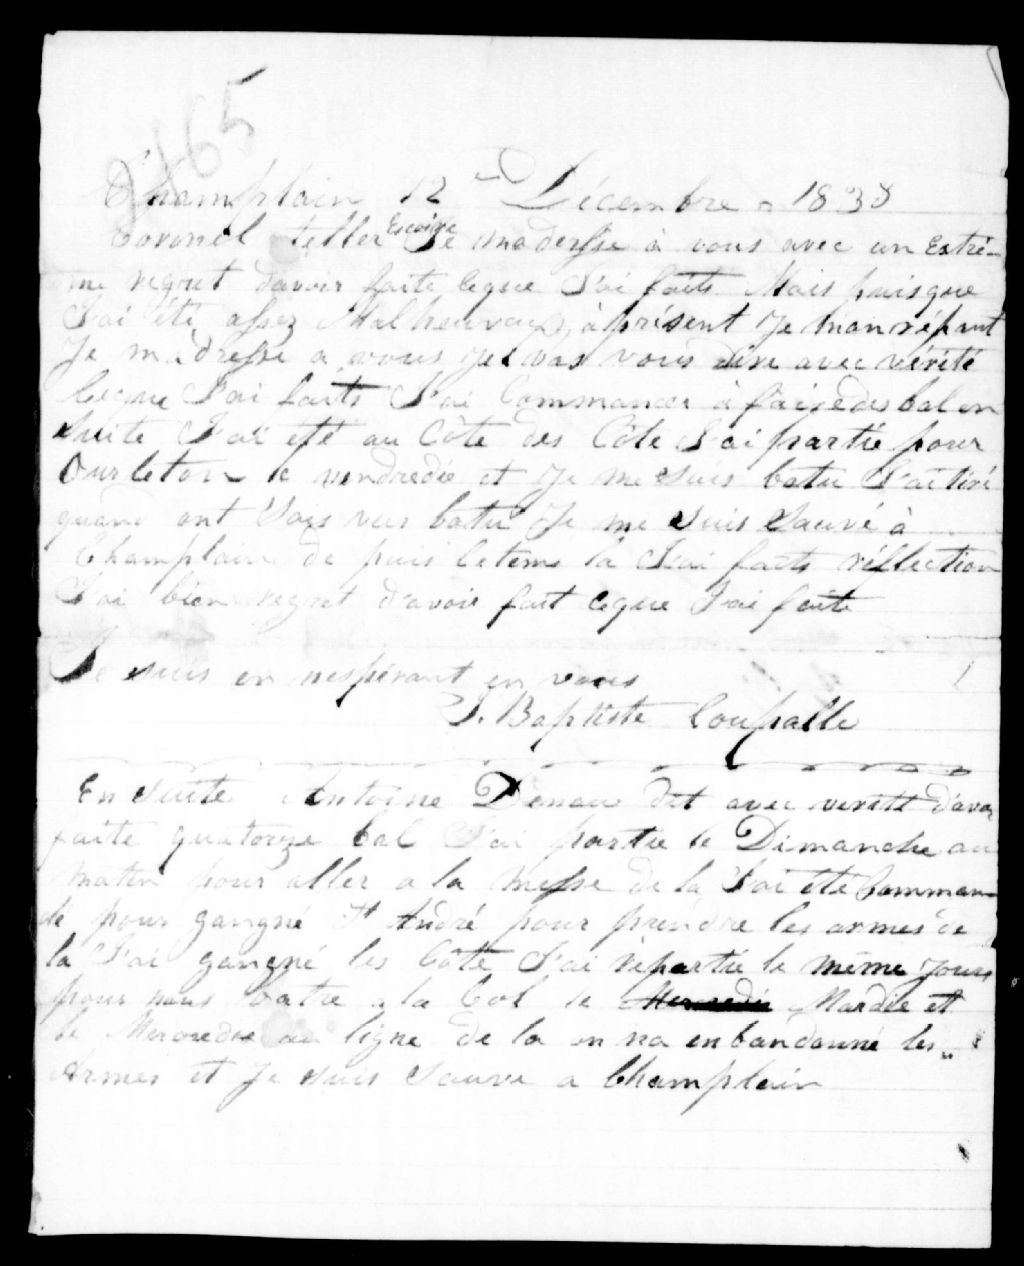 2465
Champlain 12 Décembre 1838
Coronel teller Escuire Je madresse à vous avec un Extrê-
me regret davoir faite ceque J'ai faits Mais puisque
J'ai été assez Malheureux, à présent Je man répant
Je madresse a vous Je vas vous dire avec vérité
Ceque J'ai faits J'ai Commancer à faire des bal en
Suite J'ai été au Côte des Côte J'ai partie pour
Ourleton le vendredie et Je me suis batu J'ai tiré
quand ont Sais veus batu Je me suis Sauvé à
Champlain de puis le tems la J'ai faits réflection
J'ai bien regret davoir fait ceque J'ai faite
Je suis en nespérant en vous
J. Baptiste Coupalle
En Suite Antoine Denau dit avec verité d'avoi
faite quatorze bal J'ai partie le Dimanche au
matin pour aller a la Messe de la J'ai été Comman-
dé pour gangné St André pour prendre les armes de
la J'ai gangné les Côte J'ai répartie le même Jours
pour nous batre a la Col le Mercredie Mardie et
le Mercredie au ligne de la on na enbandonné les
Armes et Je suis Sauve a Champlain